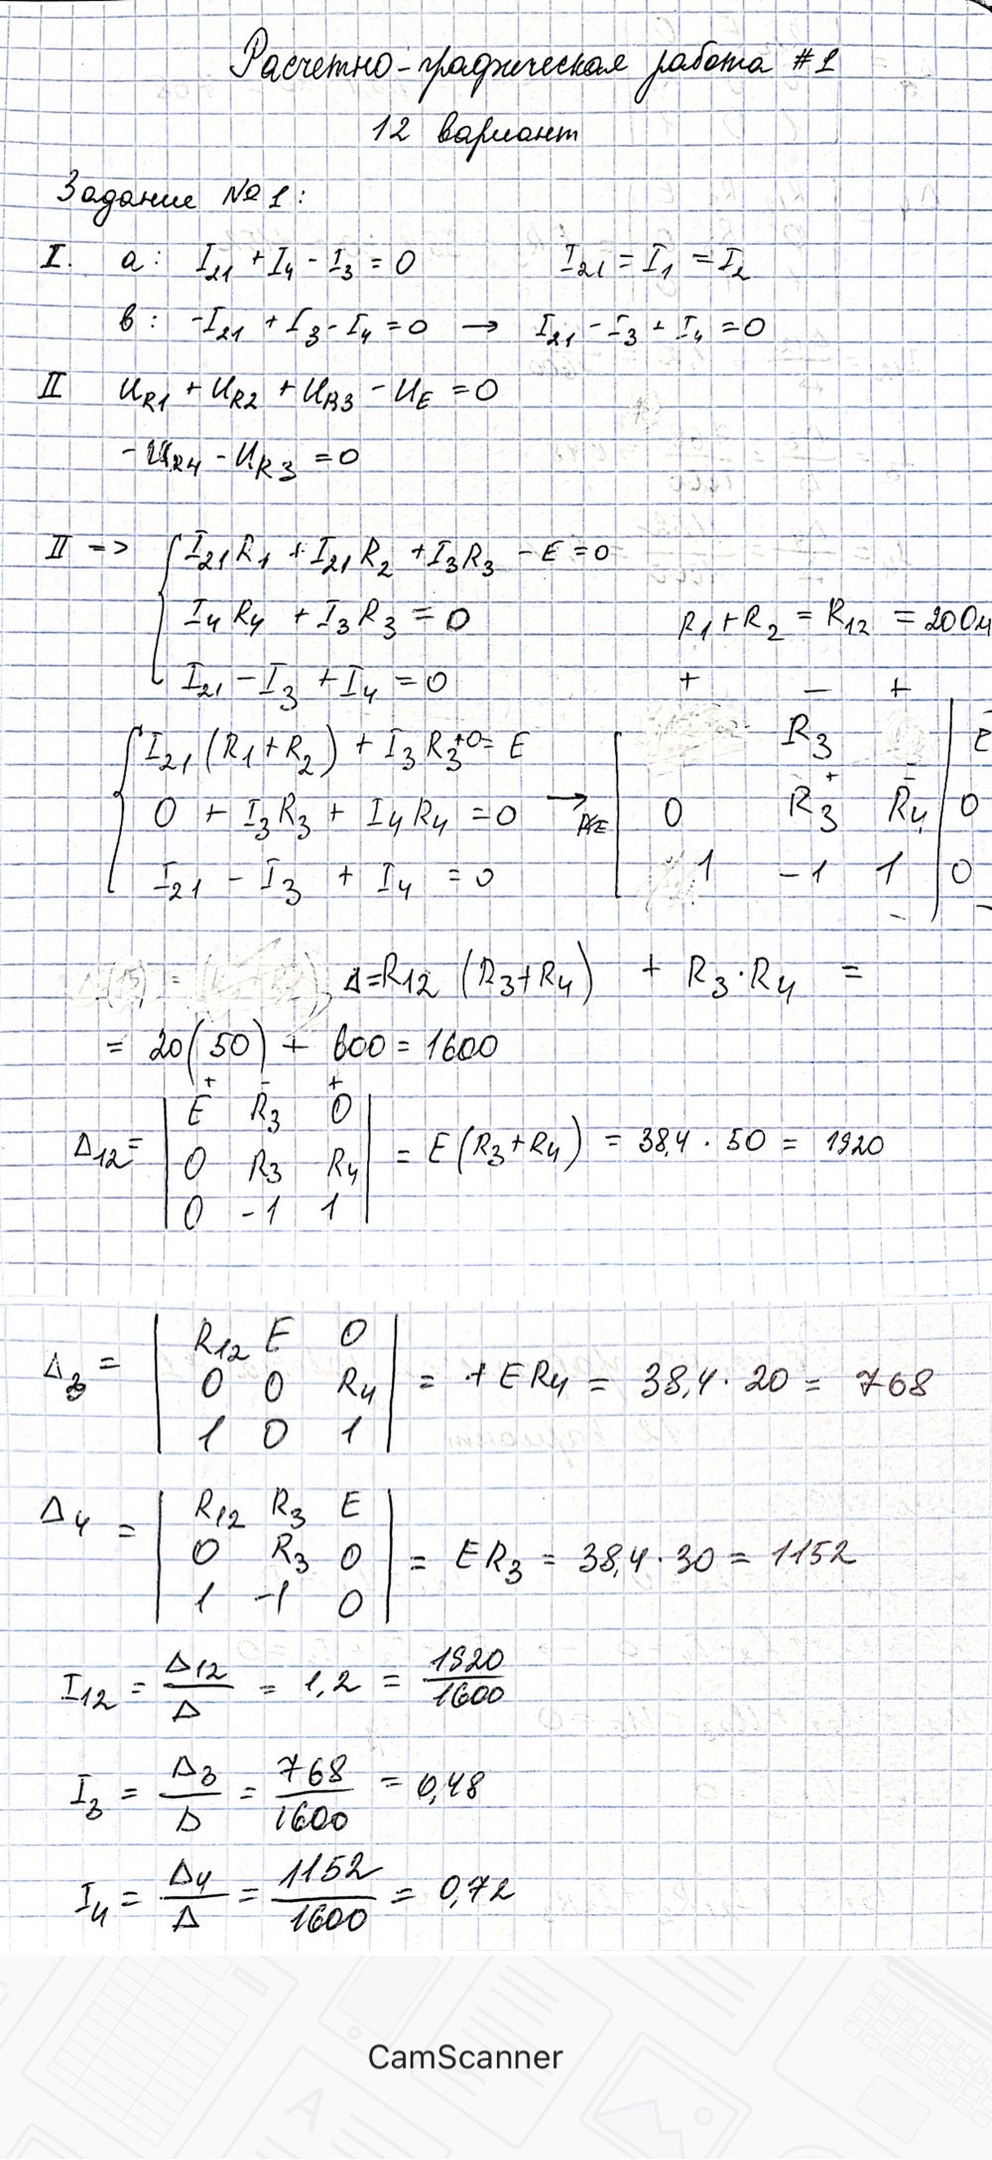 Расчетно-графическая работа #1
12 вариант
Задание №1:
I. a: I21 + I4 - I3 = 0 I21 = I1 = I2
в: -I21 + I3 - I4 = 0 → I21 - I3 + I4 = 0
II UR1 + UR2 + UR3 - UE = 0
- UR4 - UR3 = 0
II => { I21R1 + I21R2 + I3R3 - E = 0
I4R4 + I3R3 = 0 R1 + R2 = R12 = 20Ом
I21 - I3 + I4 = 0
+ - +
{ I21(R1+R2) + I3R3 +0 = E R3 E
0 + I3R3 + I4R4 = 0 → 0 R3 R4 0
I21 - I3 + I4 = 0 1 -1 1 0
Δ=R12 (R3+R4) + R3·R4 =
= 20(50) + 600 = 1600
+ - +
E R3 0
Δ12 = 0 R3 R4 = E(R3+R4) = 38,4 · 50 = 1920
0 -1 1
R12 E 0
Δ3 = 0 0 R4 = + ER4 = 38,4 · 20 = 768
1 0 1
R12 R3 E
Δ4 = 0 R3 0 = ER3 = 38,4 · 30 = 1152
1 -1 0
I12 = Δ12/Δ = 1,2 = 1920/1600
I3 = Δ3/Δ = 768/1600 = 0,48
I4 = Δ4/Δ = 1152/1600 = 0,72
CamScanner